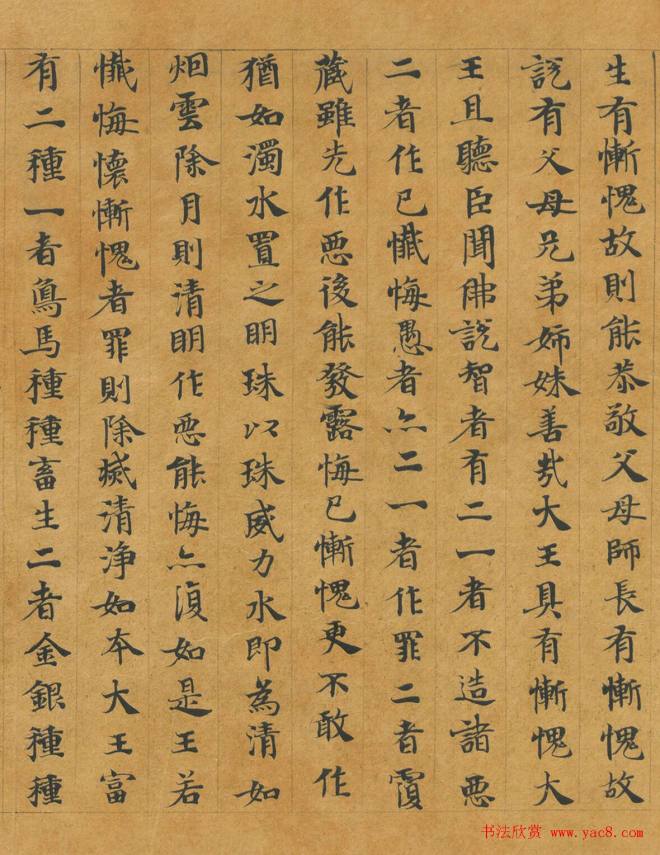 生有慚愧故則能恭敬父母師長有慚愧故
說有父母兄弟姉妹善哉大王具有慚愧大
王且聽臣聞佛說智者有二一者不造諸惡
二者作已懺悔愚者亦二一者作罪二者覆
藏雖先作惡後能發露悔已慚愧更不敢作
猶如濁水置之明珠以珠威力水即為清如
烟雲除月則清明作惡能悔亦復如是王若
懺悔懷慚愧者罪則除滅清淨如本大王富
有二種一者鳥馬種種畜生二者金銀種種
书法欣赏 www.yac8.com